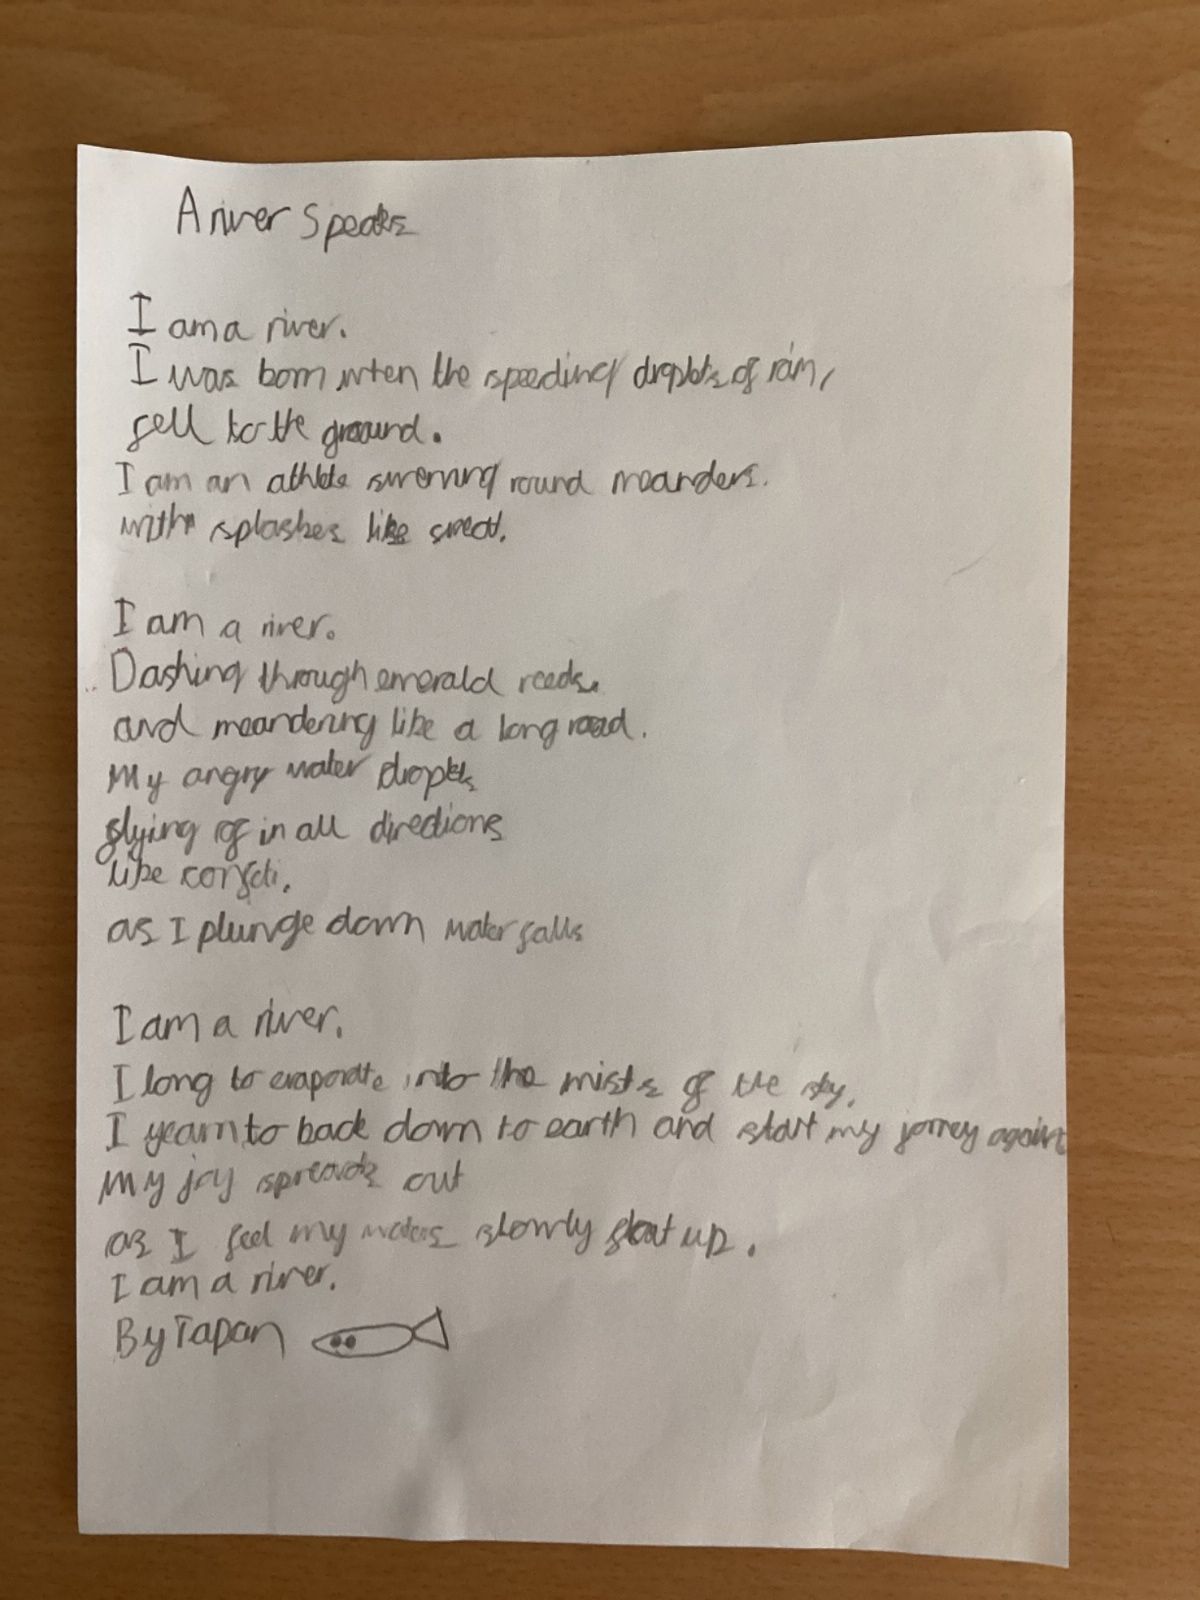 A river Speaks
I am a river.
I was born when the speeding droplets of rain,
fell to the ground.
I am an athlete swerving round meanders.
with splashes like sweat.
I am a river.
Dashing through emerald reeds.
and meandering like a long road.
My angry water droplets
flying of in all directions
like
as I plunge down water falls
I am a river.
I long to evaporate into the mists of the sky.
I yearn to back down to earth and start my jorney again
My joy spreads out
as I feel my waters slowly float up.
I am a river.
By Tapan